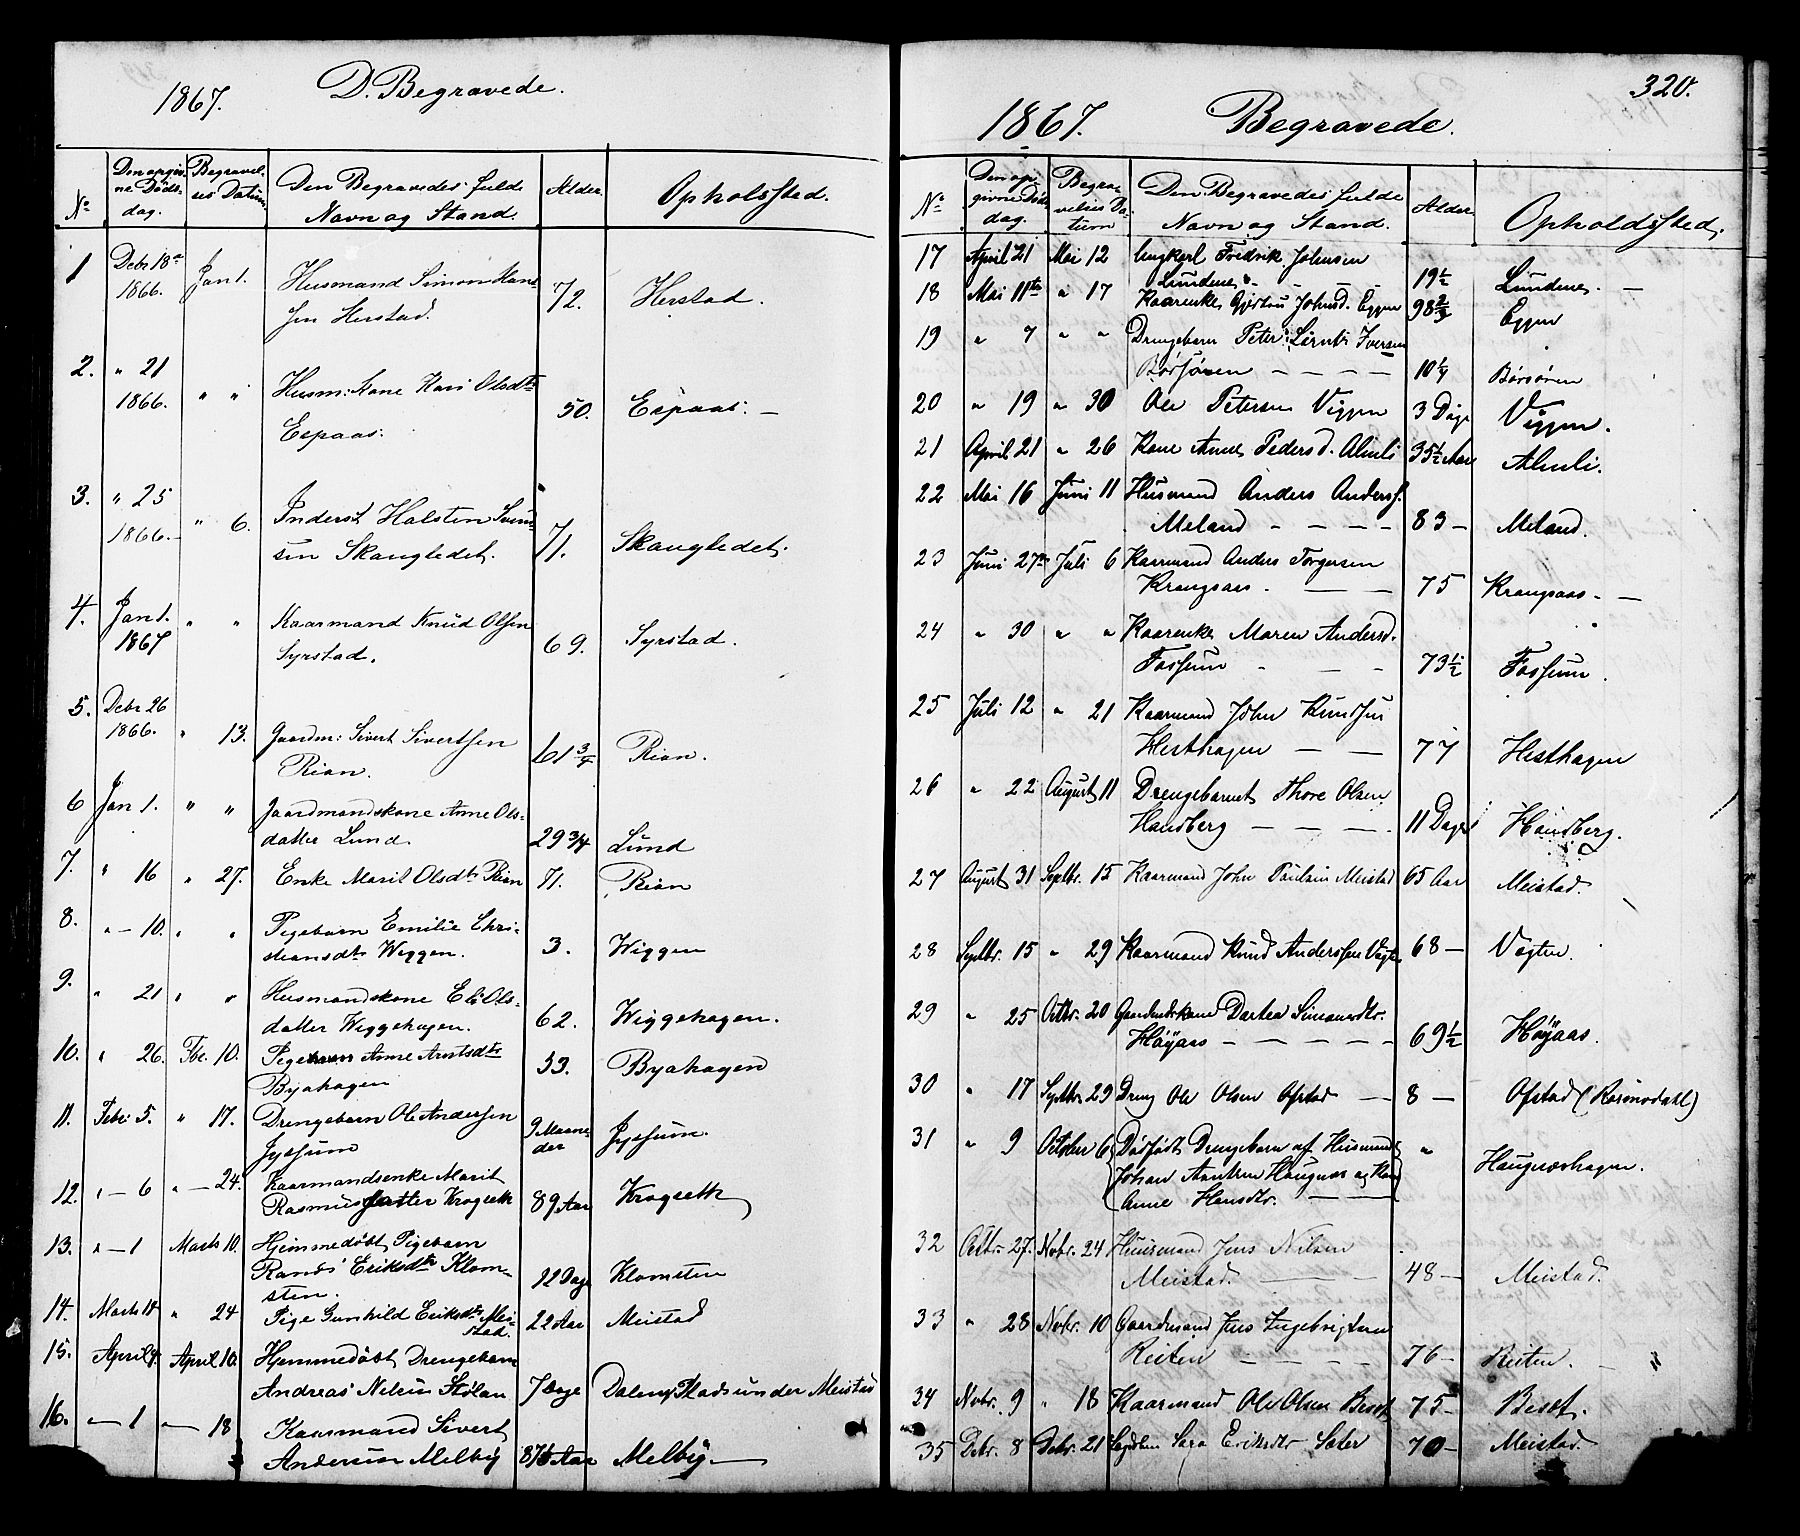 1867. D. Begravede.
No Den opgiv-
ne Döds-
dag. Begravel-
ses Datum. Den Begravedes fulde
Navn og Stand. Alder. Opholsted.
1 Debr 18de
1866. Jan 1. Husmand Simon Han-
sen Herstad. 72. Herstad.
2. " 21
1866. " " Husm: Kone Kari Olsdtr
Espaas. 50. Espaas. —
3. " 25
1866. — " 6. Inderst Halsten Svend-
sen Skaugledet. 71. Skaugledet.
4. Jan 1.
1867 " " Kaarmand Knud Olsen
Syrstad. 69. Syrstad.
5. Debr 26
1866. " 13. Gaardm: Sivert Sivertsen
Rian. 61 3/4 Rian.
6 Jan 1. " " Gaardmandskone Anne Ols-
datter Lund. 29 3/4 Lund
7. " 16 " 27. Enke Marit Olsdtr Rian 71. Rian
8. " — 10. " " Pigebarn Emilie Chri-
stiansdtr Wiggen. 3. Wiggen
9. " 21 " " Husmandskone Eli Ols-
datter Wiggehagen. 62. Wiggehagen.
10. " 26. Fbr. 10. Pige Anne Arntsdtr
Byahagen 33. Byahagen
11. Febr 5. " 17. Drengebarn Ole Andersen
Jyssum 9 Maane-
der Jyssum.
12. " — 6 " — 24. Kaarmandsenke Marit
Rasmusdatter Krogseth 89 Aar Krogseth
13. " — 1 Marts 10. Hjemmedöbt Pigebarn
Randi Eriksdtr Klom-
sten. 22 Dage Klomsten
14. Marts 14 " 24 Pige Gunhild Eriksdtr Mei-
stad. 22 Aar Meistad
15. April 4. April 10. Hjemmedöbt Drengebarn
Andreas Nelsen Stölan 7 Dage Dalen, Plads under Meistad
16. " — 1 " — 18 Kaarmand Sivert
Andersen Melby 87 1/2 Aar Melby. —
320.
1867. Begravede.
No Den op-
givne Döds-
dag. Begra-
velses Da-
tum Den Begravedes fulde
Navn og Stand. Alder. Opholdssted.
17 April 21 Mai 12 Ungkarl Fredrik Johnsen
Lundenes — — 19 1/2 Lundenes. —
18 Mai 11te " 17 Kaarenke Gjertru Johnsd. Eggen 98 2/3 Eggen
19 " 7 " " Drengebarn Peter Bernt Iversen
Börsören — — — — 10 1/4 Börsören
20 " 19 " 30 Ole Petersen Viggen 3 Dage Viggen.
21 April 21 " 26 Kone Anne Pedersd. Almli 35 1/2 Aar Almli.
22 Mai 16 Juni 11 Husmand Anders Anders.
Meland — — — — 83 — Meland.
23 Juni 27de Juli 6 Kaarmand Anders Torgersen
Krangsaas. — — 75 Krangsaas. —
24 " 30 " " Kaarenke Maren Andersd.
Fossum — — — 73 1/2 Fossum.
25 Juli 12 " 21 Kaarmand John Knudsen
Hesthagen — — 77 Hesthagen
26 " 22 August 11 Drengebarnet Thore Olsen
Haudberg — — — . 11 Dage Haudberg.
27 August 31 Septbr. 15 Kaarmand John Paulsen Meistad 65 Aar Meistad.
28 Septbr. 15 " 29 Kaarmand Knud Anderssen Vagt. 68 — Vagten.
29 " 25 Octbr. 20 Gaardmdskone Dortea Simonsdtr.
Höyaas — — — — — 69 1/2 Höyaas.
30 " 17 Septbr. 29 Dreng Ole Olsen Ofstad — 8 — Ofstad (Rosmodahl)
31 " 9 October 6 Dödfödt Drengebarn af Husmand
Johan Arntsen Haugnæs og Kone
Anne Hansdtr. — — " Haugnæshagen.
32 Octbr. 27. Novbr. 24 Huusmand Jens Nilsen
Meistad. — — 48 — Meistad.
33 " 28 Novbr. 10 Gaardmand Jens Ingebrigtsen
Reiten — — — — 76 — Reiten. —
34 Novbr. 9 " 18 Kaarmand Ole Olsen Beset 75 — Beset.
35 Debr. 8 Debr. 21 Sara Eriksdtr Sæter 70 — Meistad.